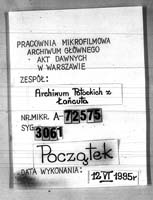 PRACOWNIA MIKROFILMOWA
ARCHIWUM GŁÓWNEGO
AKT DAWNYCH
W WARSZAWIE
ZESPÓŁ:
Archiwum Potockich z
Łańcuta
NR.MIKR. A-72575
SYG. 3061
Początek
DATA WYKONANIA: 12 VI 1995r